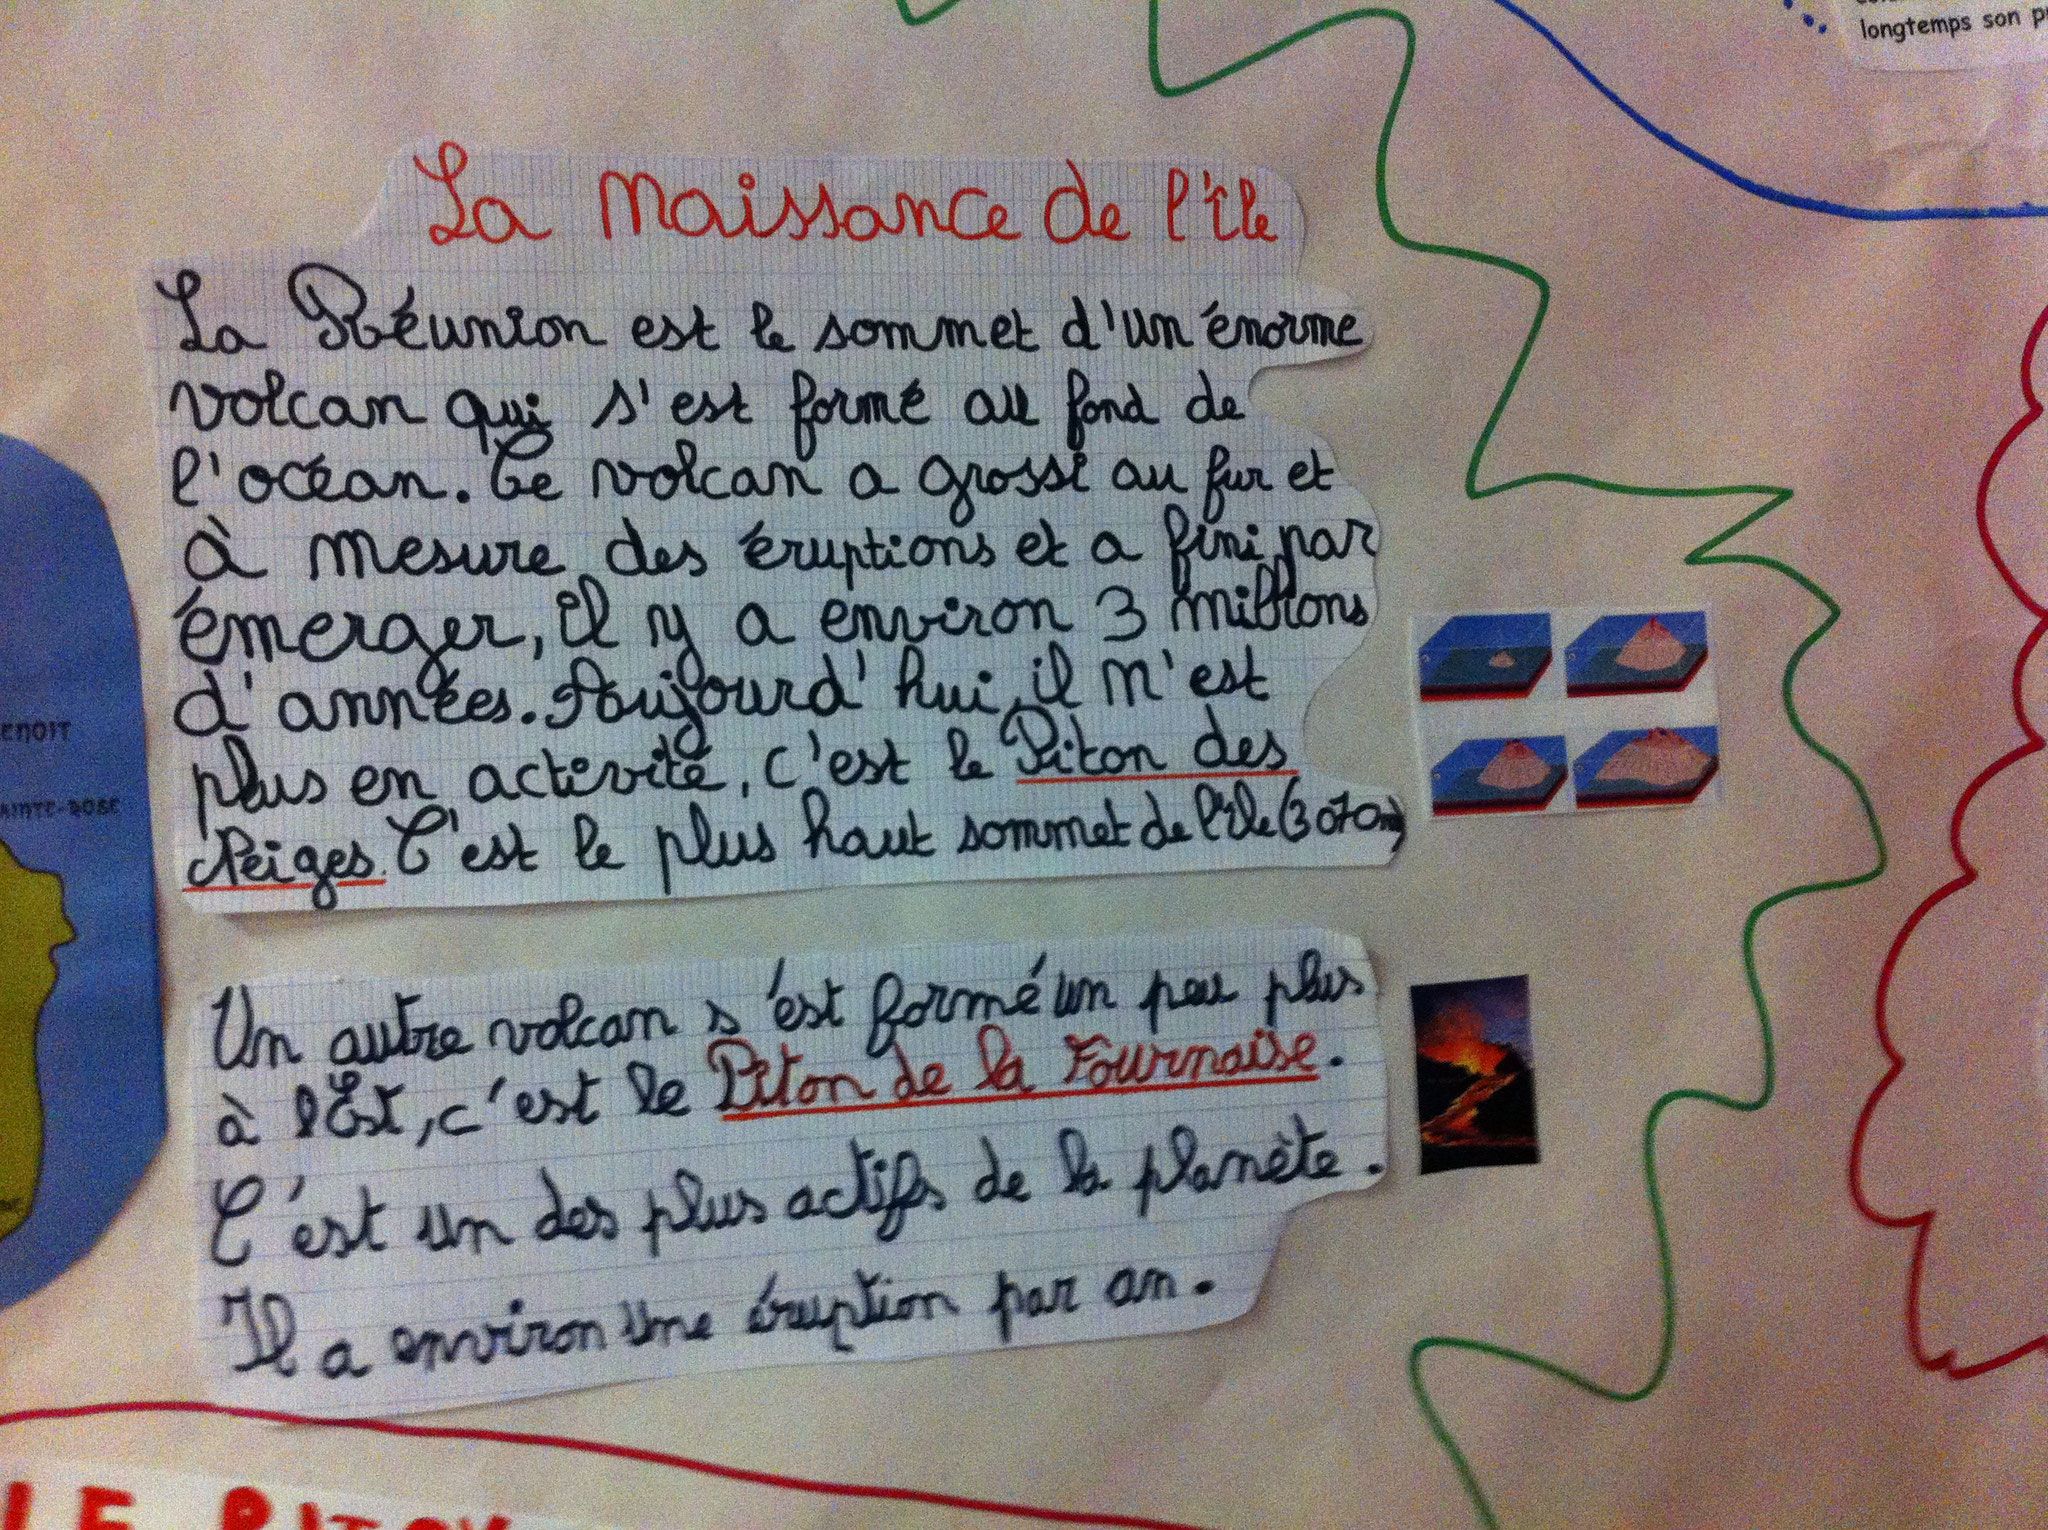 longtemps son
La naissance de l'île
La Réunion est le sommet d'un énorme
volcan qui s'est formé au fond de
l'océan. Ce volcan a grossi au fur et
à mesure des éruptions et a fini par
émerger, il y a environ 3 millions
d'années. Aujourd'hui, il n'est
plus en activité, c'est le Piton des
Neiges. C'est le plus haut sommet de l'île (3 070 m)
ENOIT
AINTE-ROSE
Un autre volcan s'est formé un peu plus
à l'Est, c'est le Piton de la Fournaise.
C'est un des plus actifs de la planète.
Il a environ une éruption par an.
LE PITON